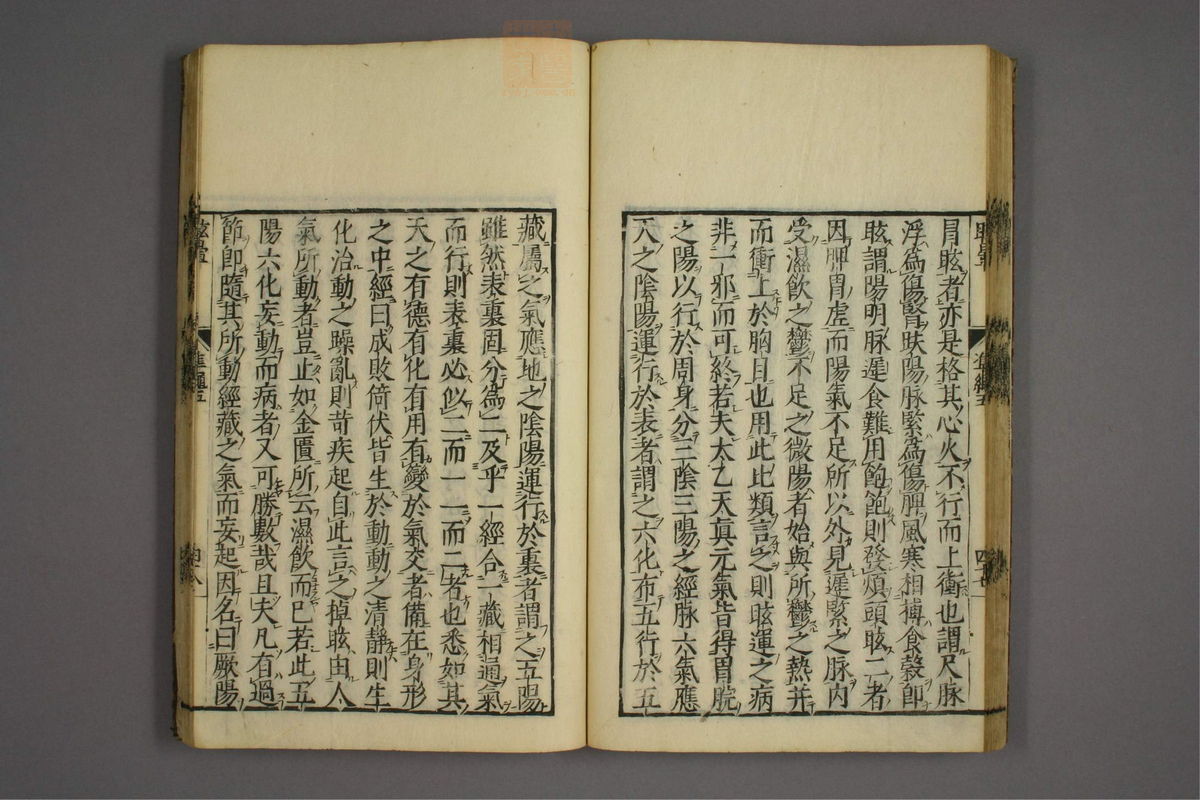 冒眩者亦是格其心火不行而上衝也謂尺脉
浮爲傷腎趺陽脉緊爲傷脾風寒相搏食穀卽
眩謂陽明脉遲食難用飽飽則發煩頭眩二者
因脾胃虛而陽氣不足所以外見遲緊之脉内
受濕飲之鬱不足之微陽者始與所鬱之熱并
而衝上於胸目也用此比類言之則眩運之病
非一邪而可終若夫太乙天眞元氣皆得胃脘
之陽以行於周身分三陰三陽之經脉六氣應
天之陰陽運行於表者謂之六化布五行於五
藏屬之氣應地之陰陽運行於裏者謂之五陽
雖然表裏固分爲二及乎一經合一藏相通氣
而行則表裏必似二而一一而二者也悉如其
天之有德有化有用有變於氣交者備在身形
之中經曰成敗倚伏皆生於動動之清靜則生
化治動之躁亂則苛疾起自此言之掉眩由人
氣所動者豈止如金匱所云濕飲而已若此五
陽六化妄動而病者又可勝數哉且夫凡有過
節卽隨其所動經藏之氣而妄起因名曰厥陽
眩暈
準繩五
四八